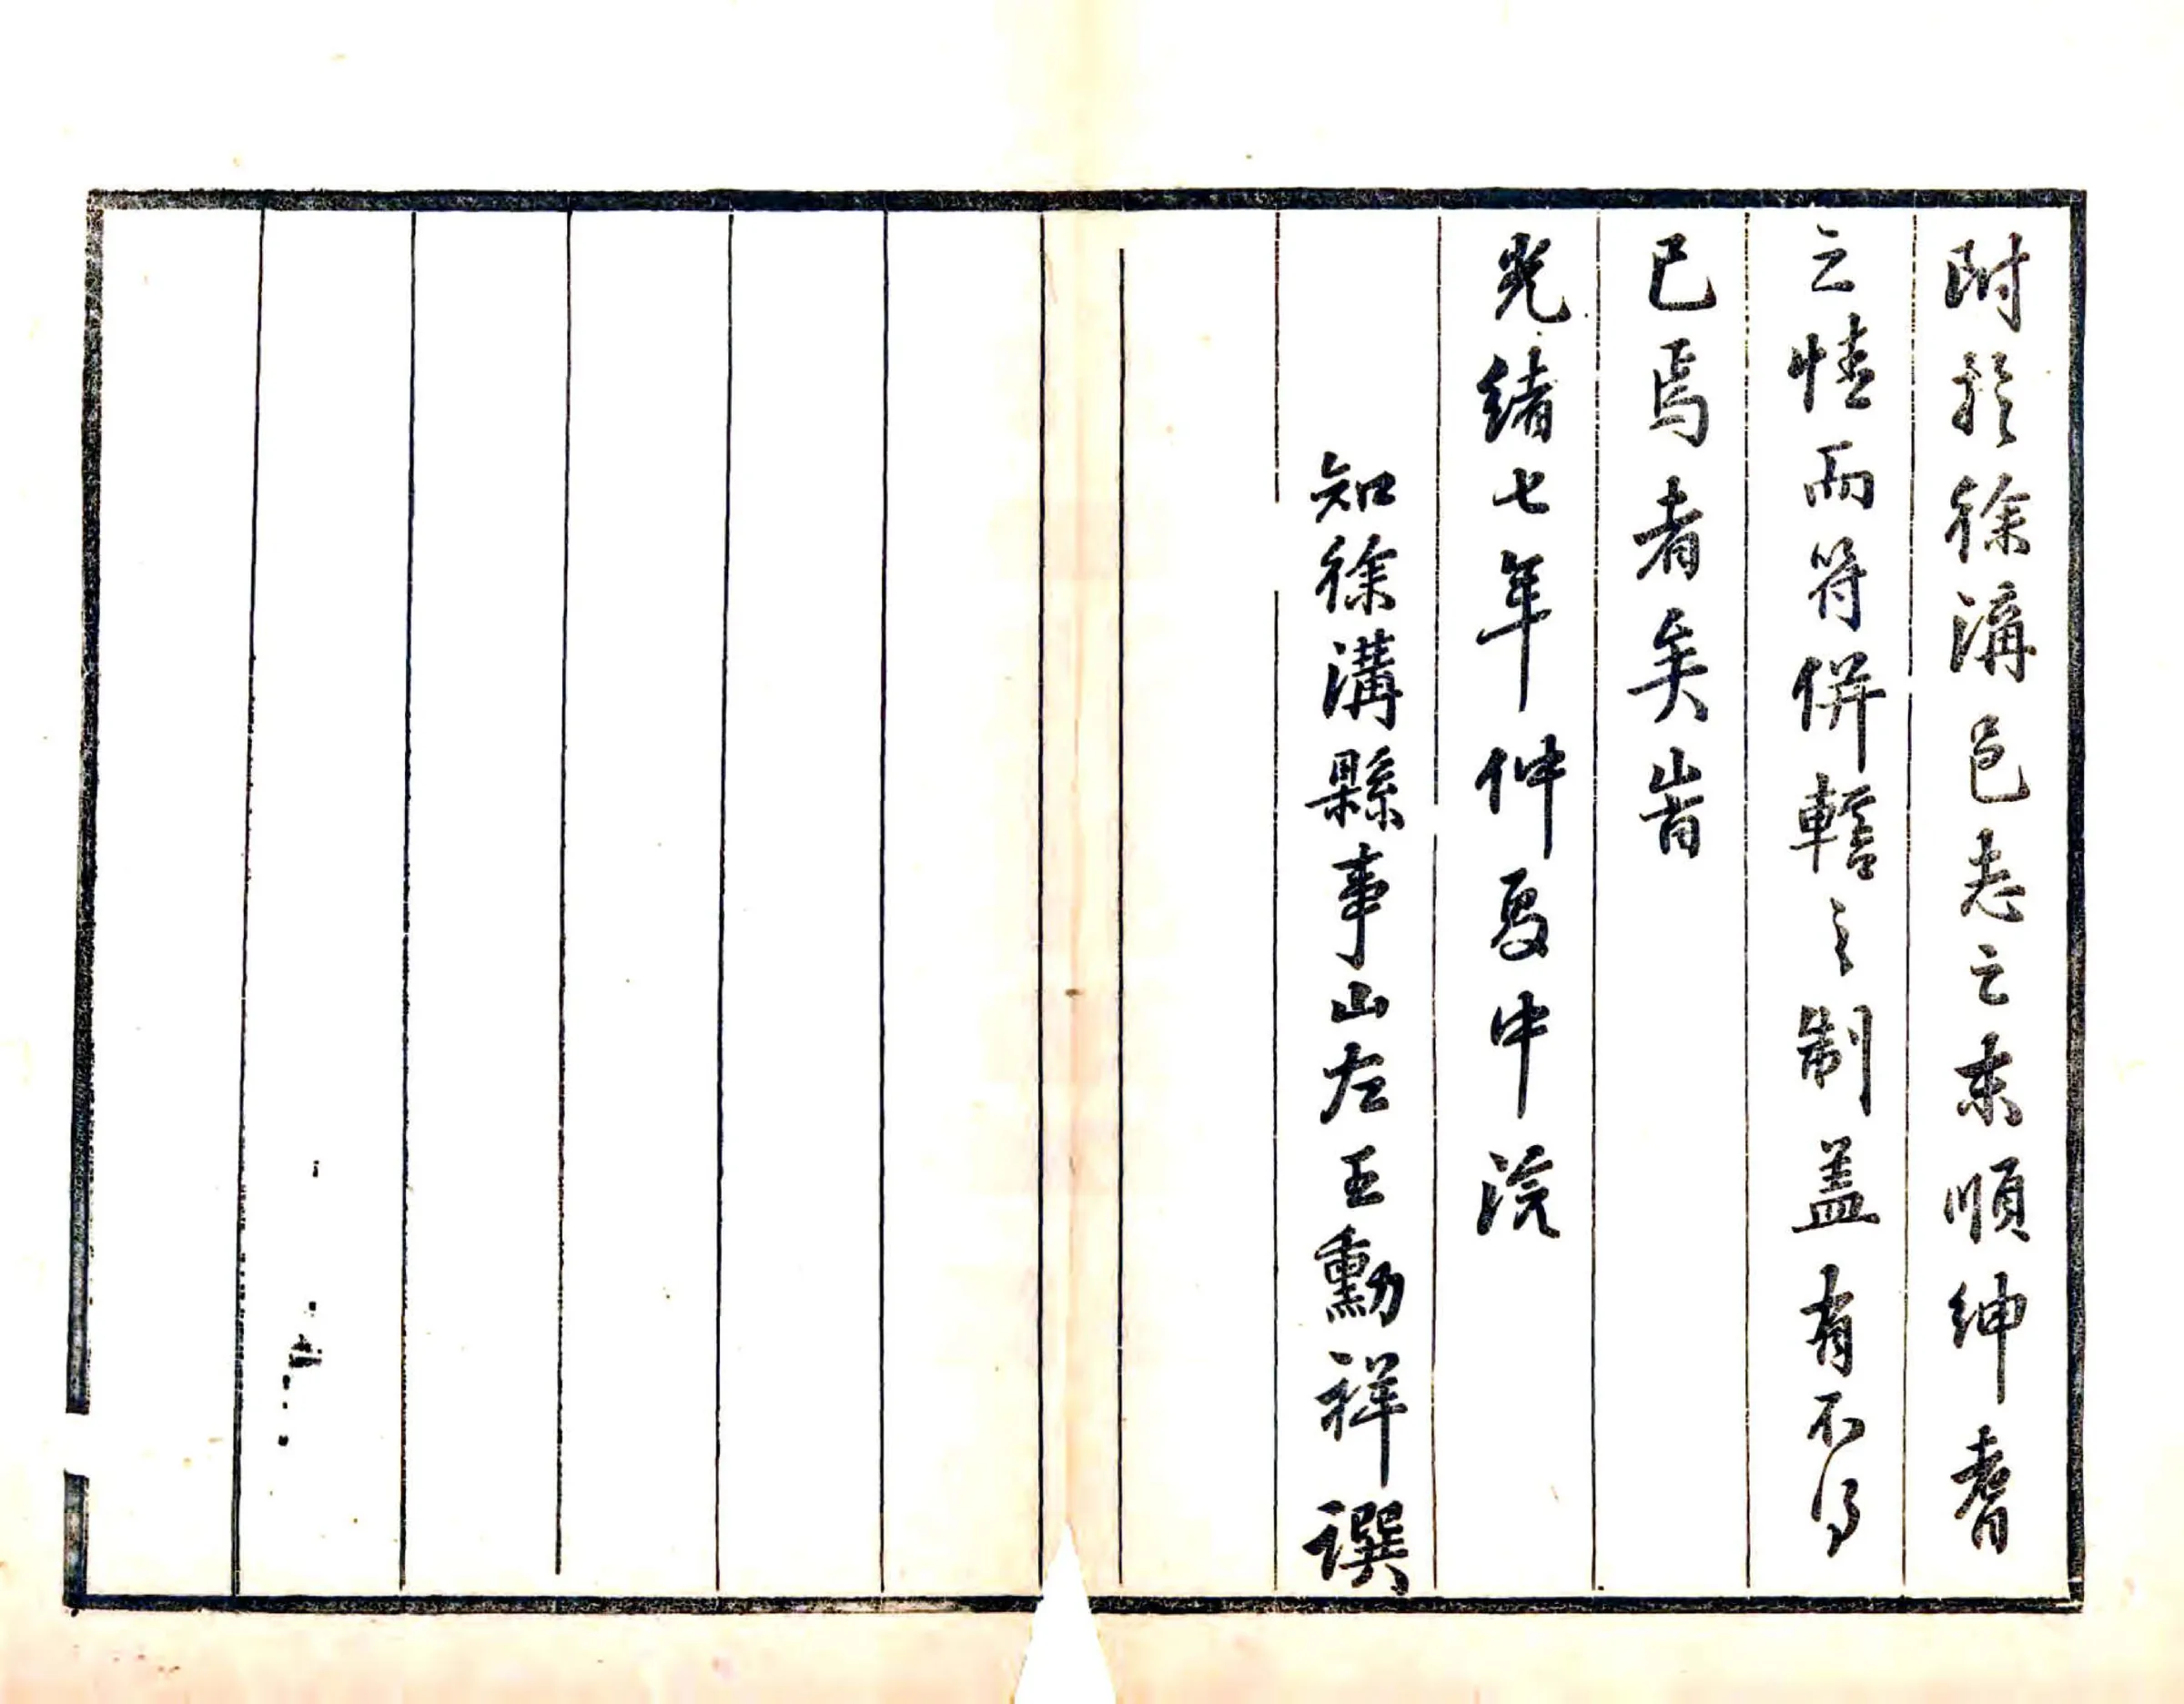 附於徐溝邑志之末順紳耆
之情而符併轄之制蓋有不得
已焉者矣旹
光緒七年仲夏中浣
知徐溝縣事山左王勳祥譔